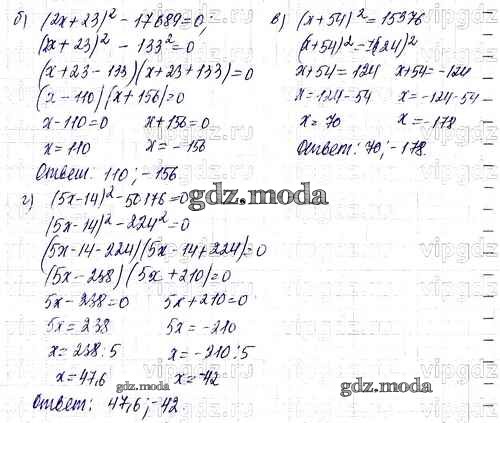 б) (2x+23)² - 17689=0;
(2x+23)² - 133²=0
(x+23-133)(x+23+133)=0
(x-110)(x+156)=0
x-110=0 x+156=0
x=110 x=-156
Ответ: 110; -156.
в) (x+54)²=15376
(x+54)²=124)²
x+54=124 x+54=-124
x=124-54 x=-124-54
x=70 x=-178
Ответ: 70; -178.
г) (5x-14)²-50176=0
(5x-14)²-224²=0
(5x-14-224)(5x-14+224)=0
(5x-238)(5x+210)=0
5x-238=0 5x+210=0
5x=238 5x=-210
x=238:5 x=-210:5
x=47,6 x=-42
Ответ: 47,6; -42.
gdz.moda
gdz.moda
gdz.moda
vipgdz